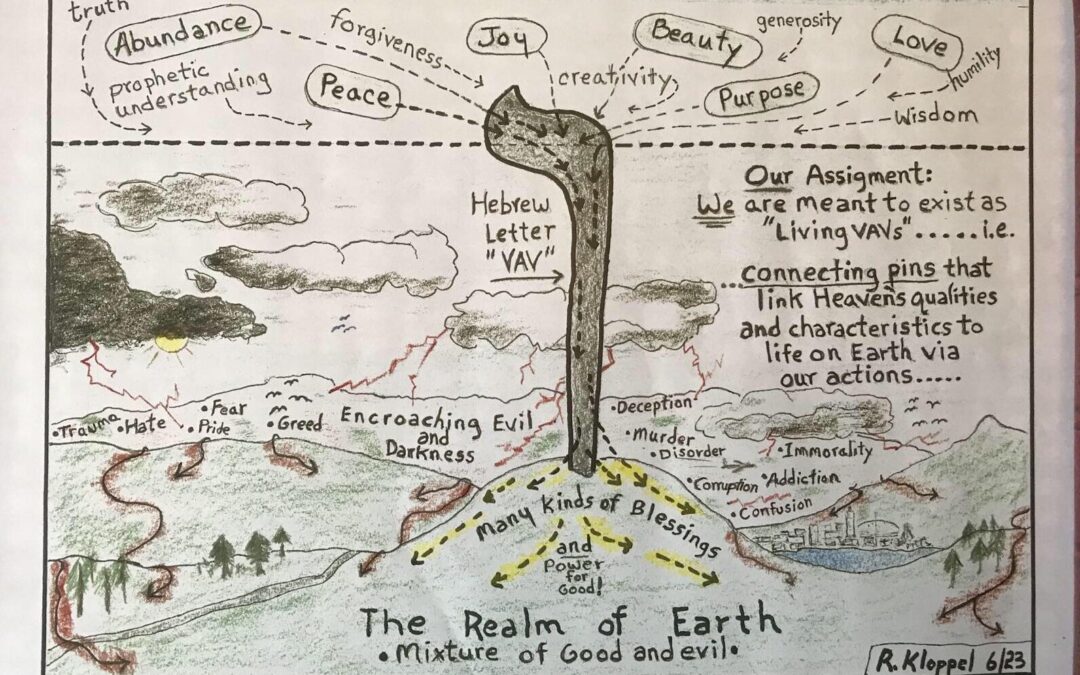 truth
Abundance
forgiveness
Joy
Beauty
generosity
Love
humility
prophetic
understanding
Peace
creativity
Purpose
Wisdom
Hebrew
Letter
"VAV"
Our Assigment:
We are meant to exist as
"Living VAVs".....i.e.
...connecting pins that
link Heaven's qualities
and characteristics to
life on Earth via
our actions.....
•Trauma
•Hate
•Fear
•Pride
•Greed
Encroaching Evil
and
Darkness
•Deception
•Murder
•Disorder
•Immorality
•Corruption
•Addiction
•Confusion
Many Kinds of Blessings
and
Power
for
Good!
The Realm of Earth
•Mixture of Good and evil•
R. Kloppel 6/23